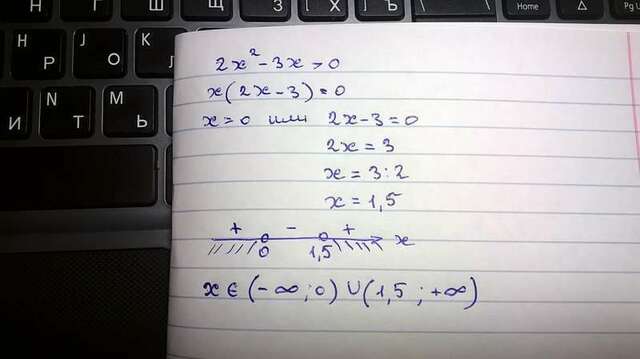 Н Г Ш Щ З Х Ъ Home Δ Pg U
Р J О K Л
N И M Т Ь
2x² - 3x > 0
x(2x - 3) = 0
x = 0 или 2x - 3 = 0
2x = 3
x = 3 : 2
x = 1,5
+ - +
0 1,5 x
x ∈ (-∞; 0) ∪ (1,5 ; +∞)